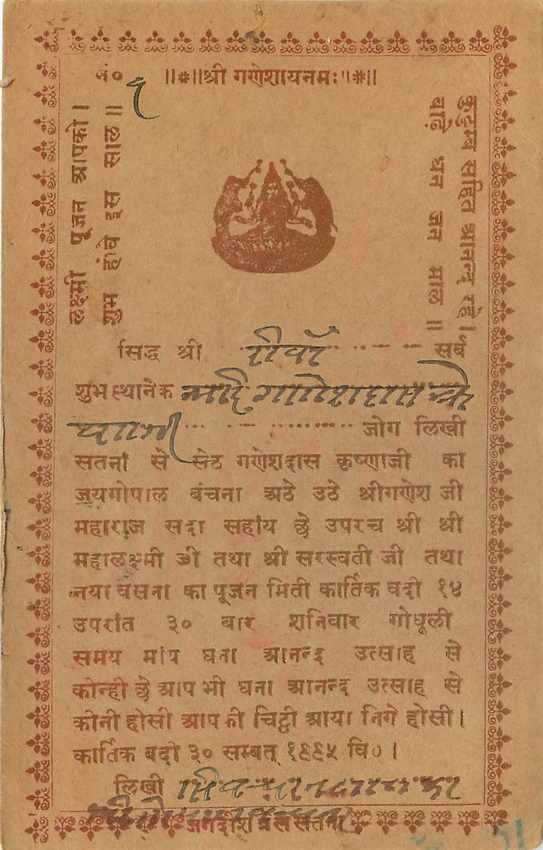 ॥❈॥श्री गणेशायनमः॥❈॥
नं० १
लक्ष्मी पूजन आपको।
शुभ होवे इस साल॥
कुटुम्ब सहित आनन्द रहे।
बाढ़े धन जन माल॥
सिद्ध श्री रीवाँ सर्व
शुभस्थानेक
जोग लिखी
सतना से सेठ गणेशदास कृष्णाजी का
जयगोपाल बंचना अठे उठे श्रीगणेश जी
महाराज सदा सहाय छे उपरंच श्री श्री
महालक्ष्मी जी तथा श्री सरस्वती जी तथा
नया वसना का पूजन मिती कार्तिक वदी १४
उपरांत ३० वार शनिवार गोधूली
समय मांय घना आनन्द उत्साह से
कीन्ही छे आप भी घना आनन्द उत्साह से
कीनी होसी आप की चिट्टी आया निगे होसी।
कार्तिक वदी ३० सम्बत् १९९५ वि०।
लिखी
जगदीश प्रेस सतना